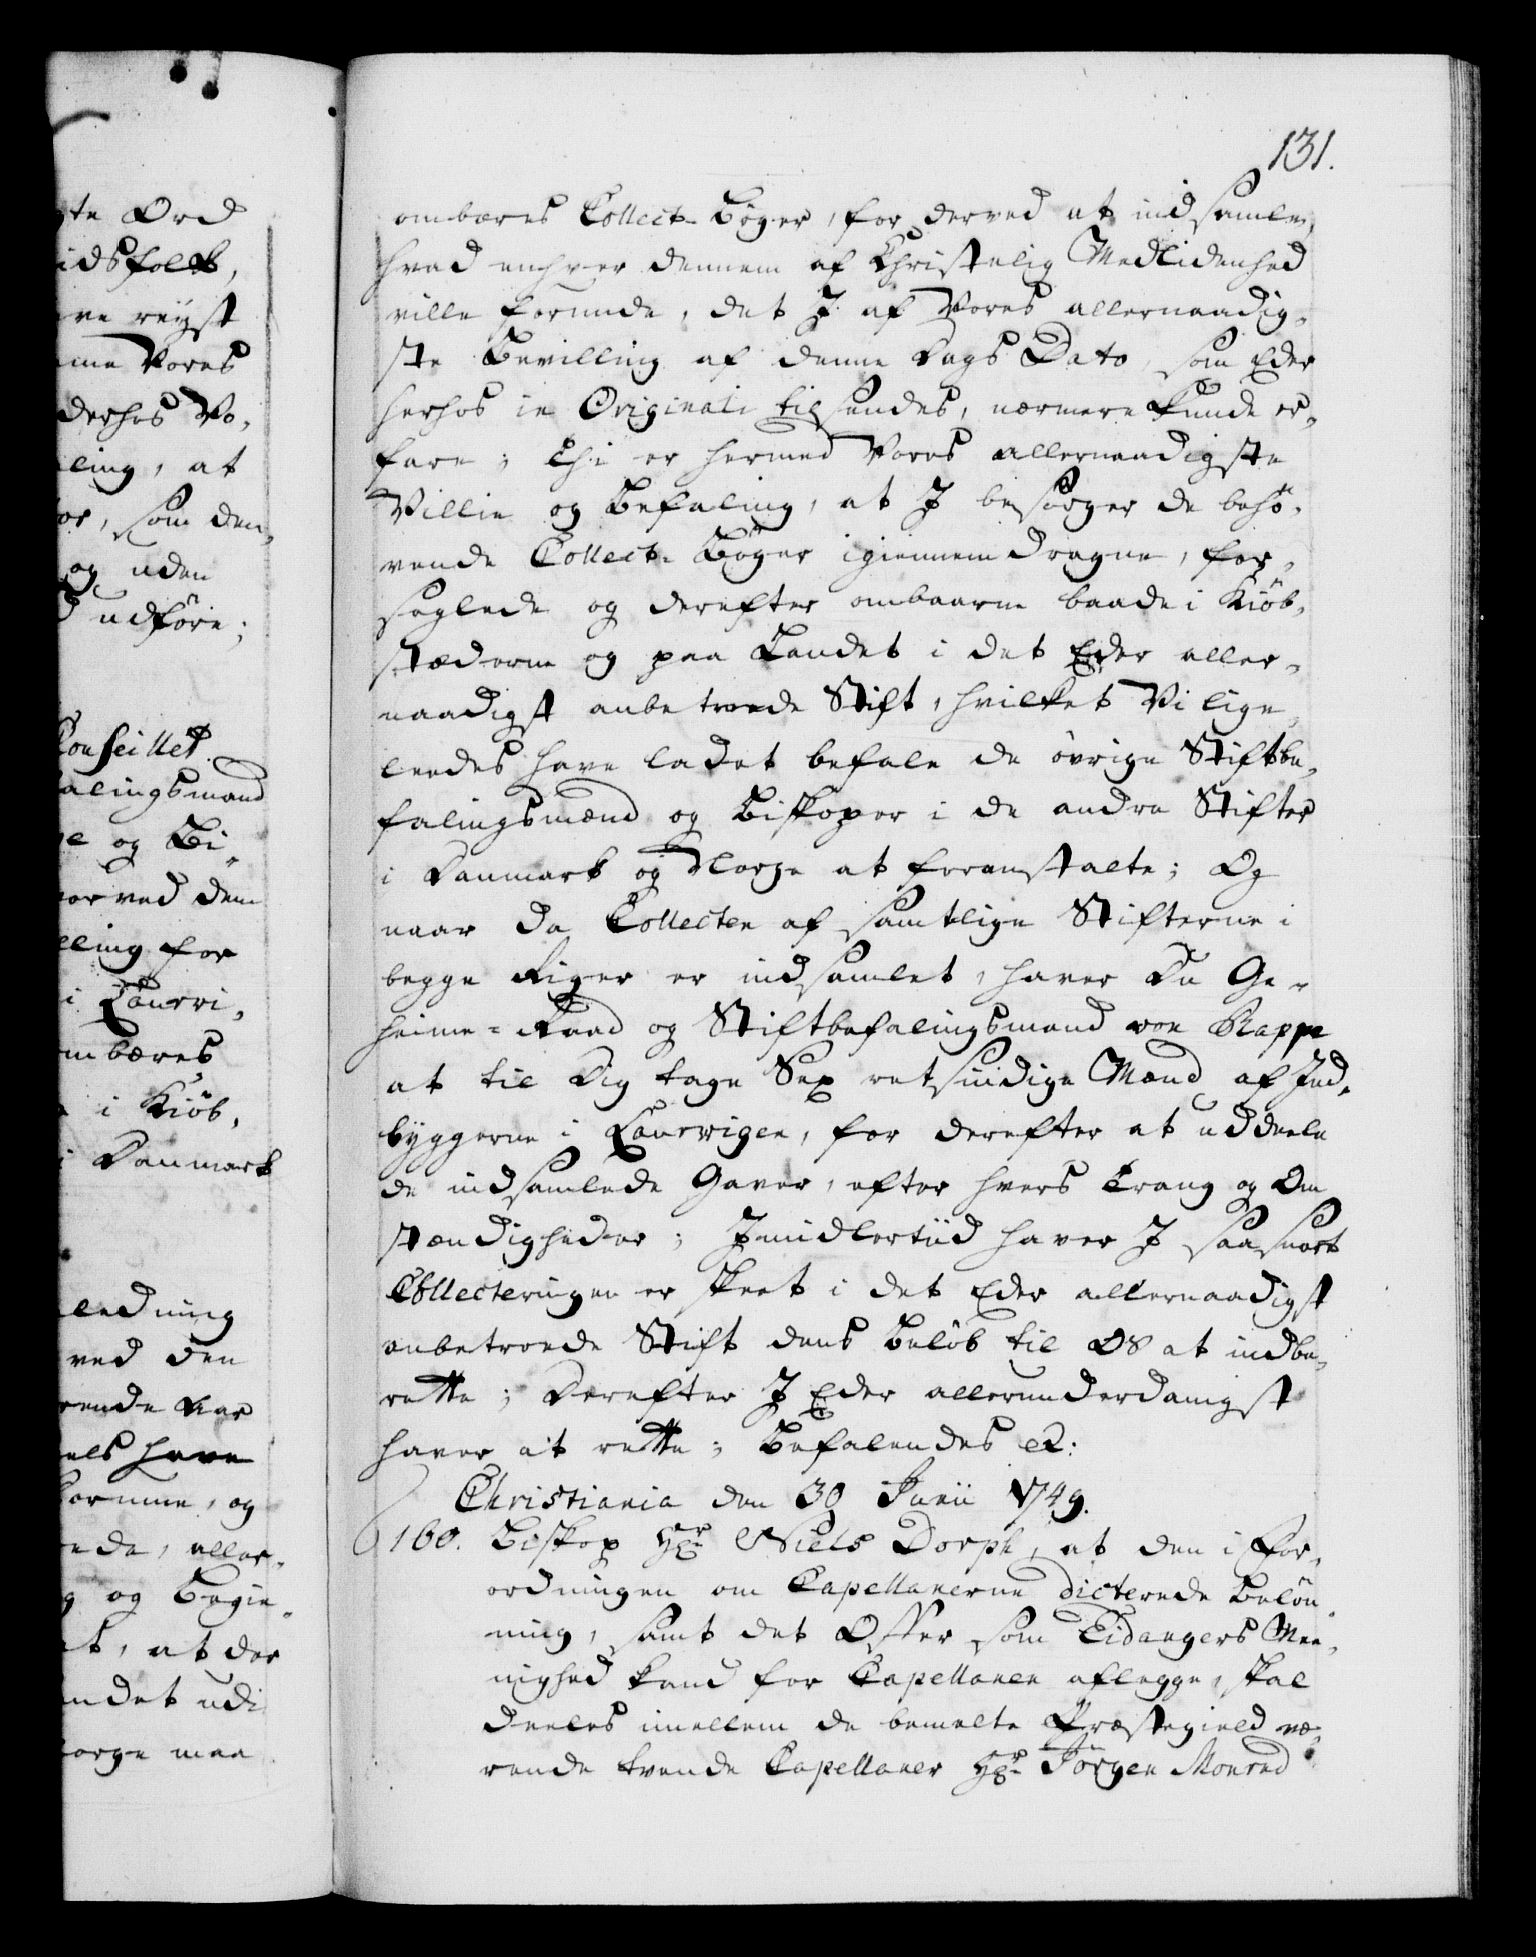 131.
ombæres Collect-Bøger, for derved at indsamle,
hvad enhver dennem af Christelig Medlidenhed
ville forunde, det J af Vores allernaadig-
ste Bevilling af denne Dags Dato, som Eder
herhos in Originali tilsendes, nærmere kunde er-
fare; Thi er hermed Vores allernaadigste
Villie og Befaling, at J besørger de behø-
vende Collect-Bøger igiennemdragne, for-
seglede og derefter ombaarne baade i Kiøb-
stæderne og paa Landet i det Eder aller-
naadigst anbetroede Stift, hvilket Vi lige
leedes have ladet befale de øvrige Stiftbe-
falingsmænd og Biskoper i de andre Stifter
i Danmark og Norge at foranstalte; Og
naar da Collecten af samtlige Stifterne i
begge Riger er indsamlet, haver Du Ge-
heime-Raad og Stiftbefalingsmand von Rappe
at til Dig tage Sex retsindige Mænd af Ind-
byggerne i Laurwigen, for derefter at uddeele
de indsamlede Gaver, efter hvers Trang og Om
stændigheder; Jmidlertiid haver J saasnart
Collecteringen er skeet i det Eder allernaadigst
anbetroede Stift dens Beløb til OS at indbe-
rette; Derefter J Eder allerunderdanigst
haver at rette; Befalendes etc:
Christiania den 30 Junii 1749.
160. Biskop Hr Niels Dorph, at den i For-
ordningen om Capellanerne dicterede Beløn-
ning, samt det Offer som Eidangers Mee-
nighed kand for Capellanen aflegge, skal
deeles imellem de bemelte Præstegield væ-
rende tvende Capellaner Hr Jørgen Monrad
te Ord
idsfolk,
ve reyst
me Vores
derhos Vo-
ling, at
or, som den,
og uden
udføre;
Conseillet.
alingsmand
e og Bi-
orved dem
ling for
i Laurvi-
mbæres
i Kiøb-
i Danmark
ledning
ved den
rende Aar
els have
orme, og
ede, aller-
g og Begie-
t, at der
ndet udi
orge maa